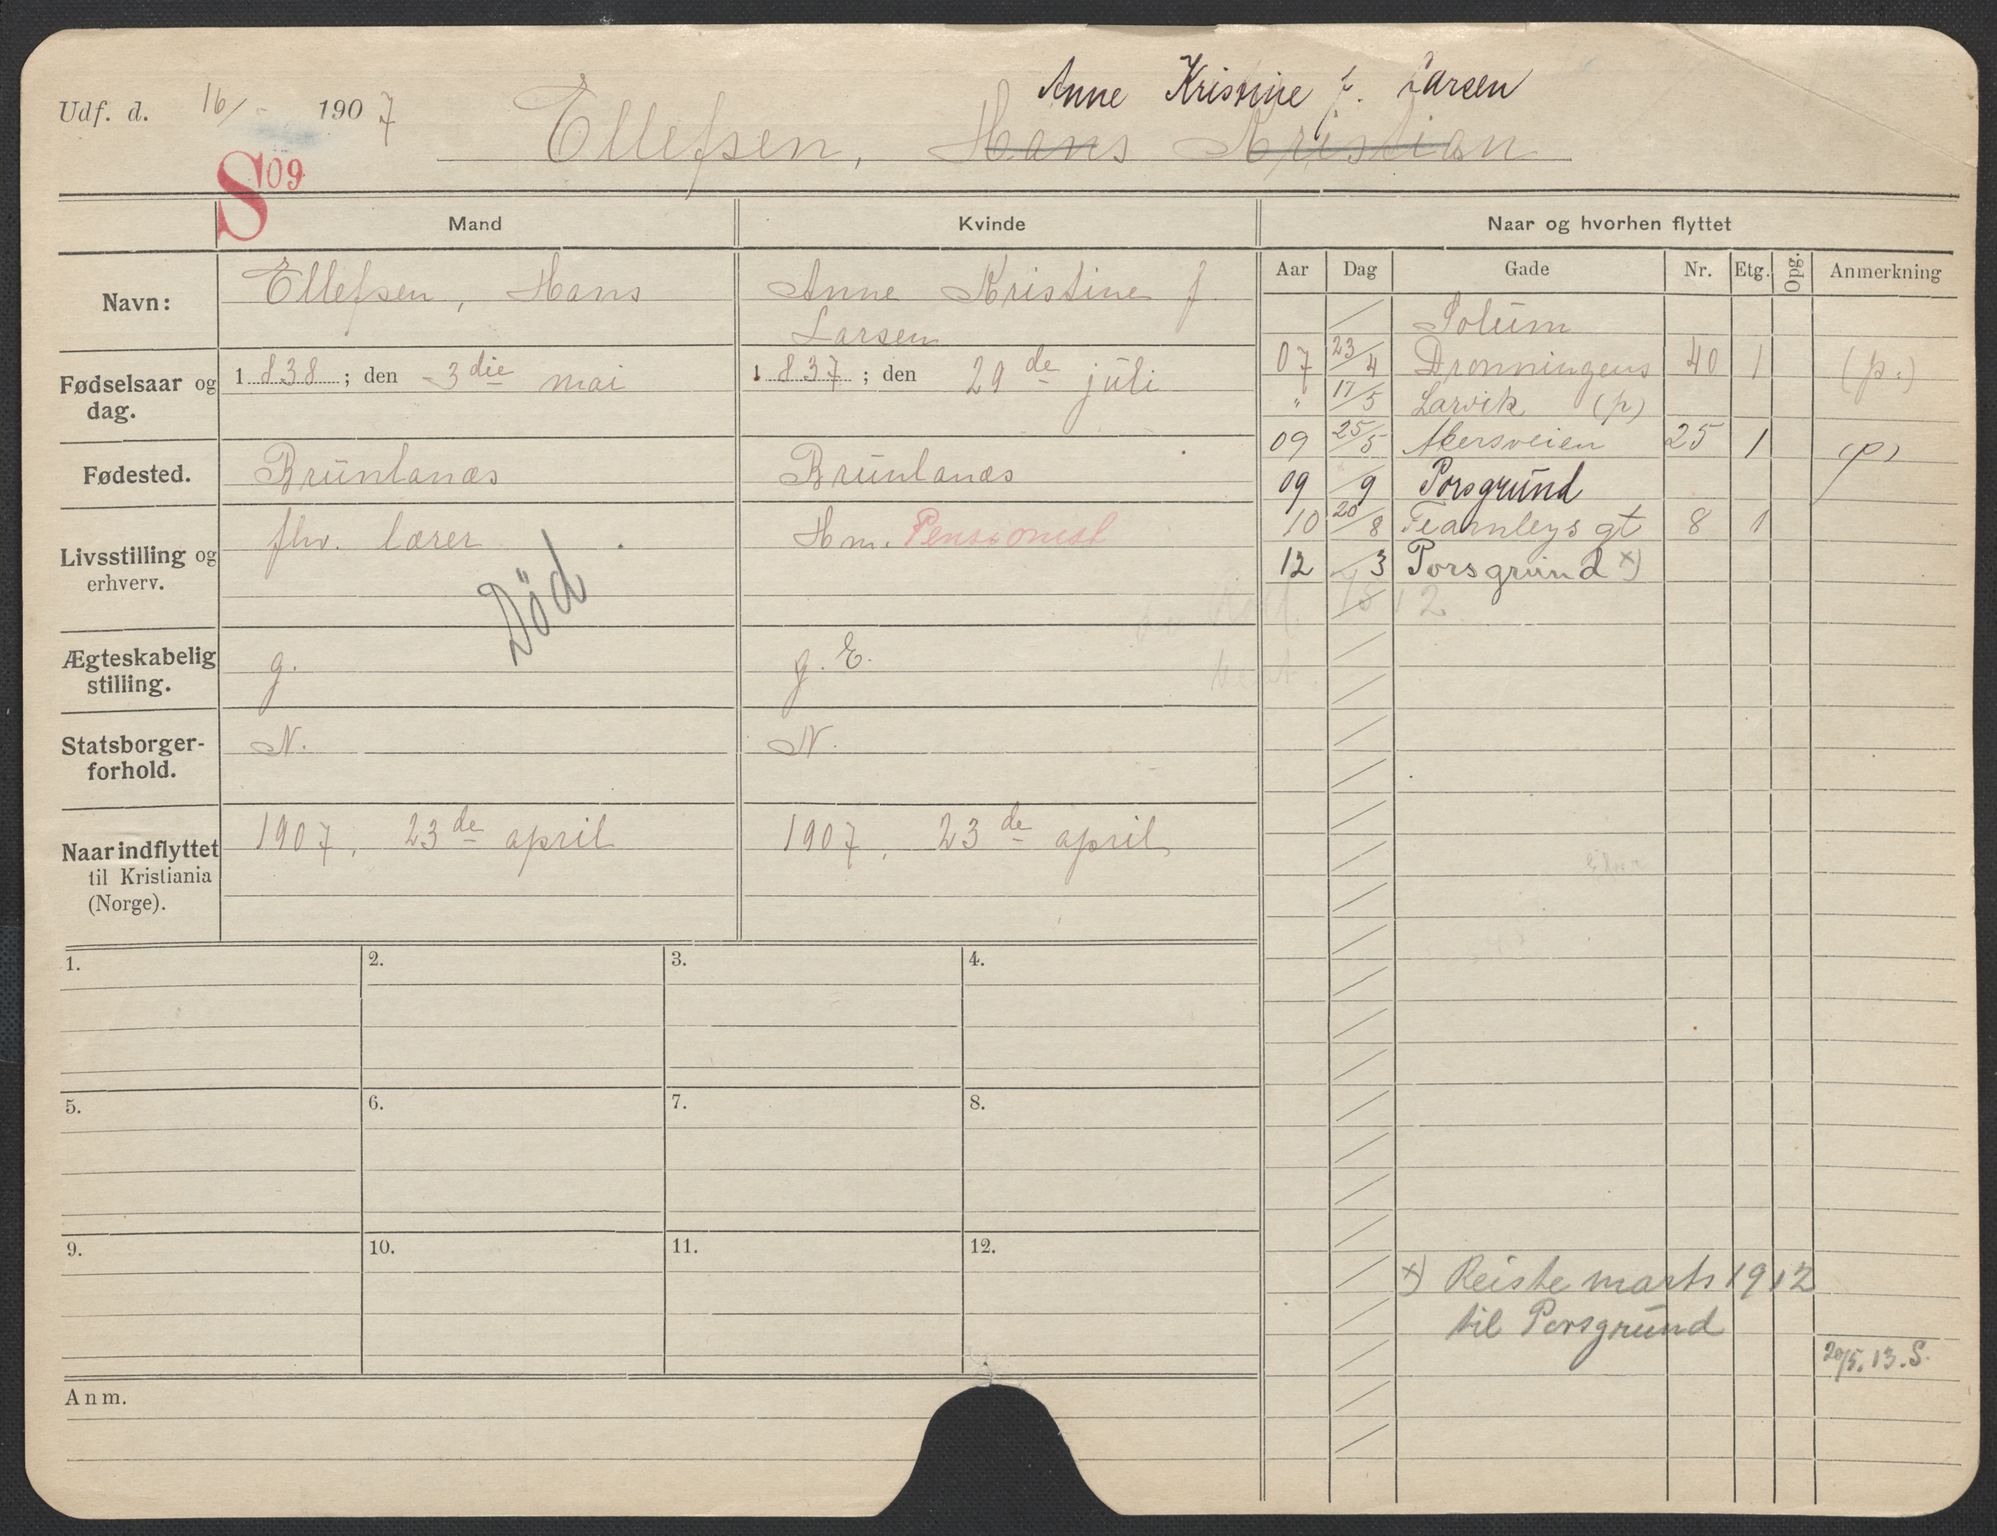 Anne Kristine f. Larsen
Udf. d. 16/ 1907 Ellefsen, Hans Kristian
S 09
Mand Kvinde Naar og hvorhen flyttet
Aar Dag Gade Nr. Etg. Opg. Anmerkning
Navn: Ellefsen, Hans Anne Kristine f.
Larsen
Solum
Fødselsaar og dag. 1838; den 3die mai 1837; den 29de juli
07 23/4 Dronningens 40 1 (p.)
" 17/5 Larvik (p)
09 25/5 Akersveien 25 1 (p)
Fødested. Brunlanæs Brunlanæs
09 /9 Porsgrund
Livsstilling og erhverv. fhv. lærer Hm. Pensionist
10 20/8 Fearnleys gt 8 1
12 /3 Porsgrund x)
Død
Ægteskabelig stilling. g. g. E.
Statsborgerforhold. N. N.
Naar indflyttet til Kristiania (Norge). 1907, 23de april 1907, 23de april
1. 2. 3. 4.
5. 6. 7. 8.
9. 10. 11. 12.
x) Reiste marts 1912
til Porsgrund
20/5. 13. S.
Anm.